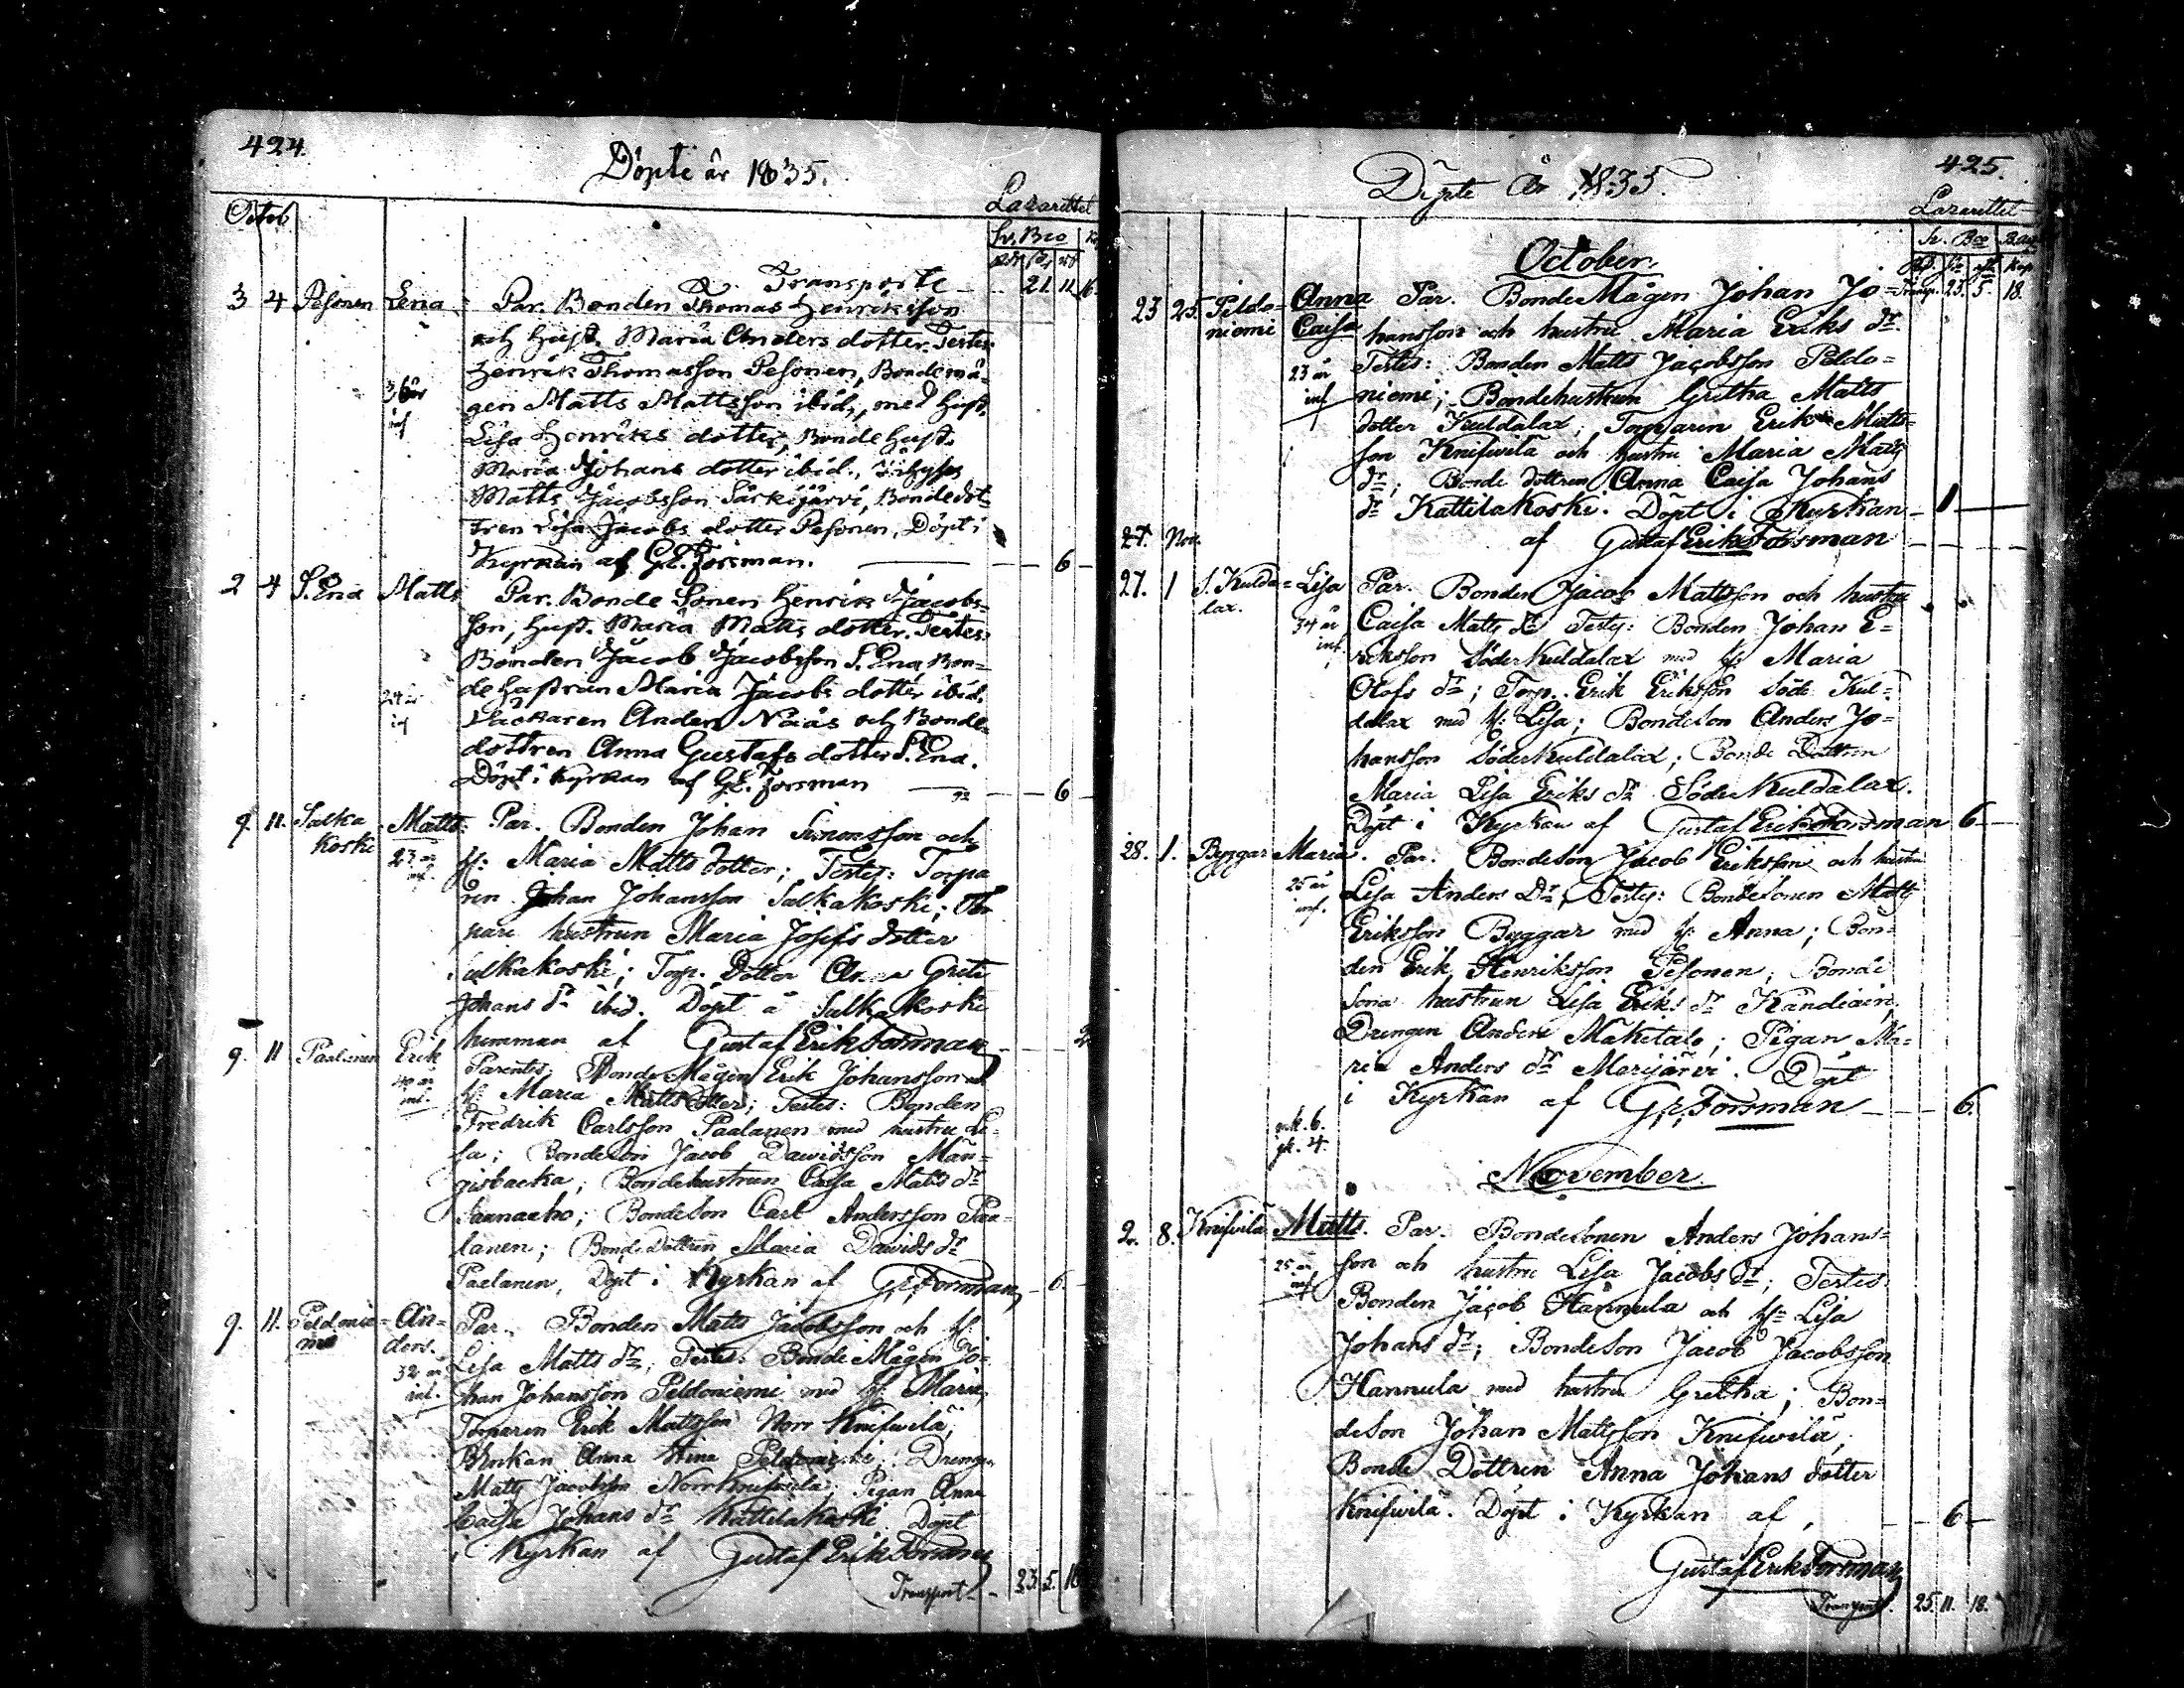 424.
Döpte år 1835.
Lazarettet
Octob
Sv. Bco
Transporte 21. 11. 16
3 4 Pesonen Lena Par. Bonden Thomas Henriksson
och Hust. Maria Anders dotter. Testes:
Henrik Thomasson Pesonen, Bondemå-
36 år gen Matts Mattsson ibid., med Hust.
inf Lisa Henriks dotter, Bonde Hust.
Maria Johans dotter ibid.,
Matts Jacobsson Särkijärvi, Bondedot-
tren Lisa Jacobs dotter Pesonen, Döpt i
Kyrkan af G.E. Forsman. 6
2 4 S. Ena Matts Par. Bonde Sonen Henrik Jacobs-
son, Hust. Maria Matts dotter. Testes:
Bonden Jacob Jacobsson S. Ena, Bon-
de Hustrun Maria Jacobs dotter ibid.
inf Anders Näiäs och Bonde-
dottren Anna Gustafs dotter S. Ena.
Döpt i Kyrkan af G.E. Forsman 6
9. 11. Salka Matts: Par. Bonden Johan Simonsson och
koski 23 år H: Maria Matts dotter; Testes: Torpa
inf. ren Johan Johansson Salkakoski; Tor
pare hustrun Maria Josefs dotter
Salkakoski; Torp. Dotter Anna Greta
Johans dr ibid. Döpt å Salkakoski
hemman af Gustaf Erik Forsman 2
9. 11 Paalanen Erik Parentes: Bonde Mågen Erik Johansson och
40 år H: Maria Matts dotter; Testes: Bonden
inf. Fredrik Carlsson Paalanen med hustru Li-
sa; Bondeson Jacob Dawidsson Män-
gisbacka; Bondehustrun Caisa Matts dr
Saunaaho; Bondeson Carl Andersson Paa-
lanen; Bonde Dottren Maria Dawids dr
Paalanen, Döpt i Kyrkan af G.E. Forsman 6
9. 11. Peldonie- An- Par. Bonden Matts Jacobsson och H:
mi ders. Lisa Matts dr; Testes: Bonde Mågen Jo-
32 år inf. han Johansson Peldoniemi med H: Maria,
Torparen Erik Mattsson Norr Knifwilä,
Enkan Anna Stina Peldoniemi; Drengen
Matts Jacobsson Norrknifwilä; Pigan Anna
Caisa Johans dr Kattilakoski. Döpt
i Kyrkan af Gustaf Erik Forsman
Transport 23. 5. 18
425.
Döpte År 1835.
Lazarettet
Sv. Bco
October.
Transp. 23. 5. 18.
23 25. Peldo- Anna Par. Bonde Mågen Johan Jo-
niemi Caisa hansson och hustru Maria Eriks dr
23 år Testes: Bonden Matts Jacobsson Peldo-
inf niemi; Bondehustrun Gretha Matts
dotter Kuldalax; Torparen Erik Matts-
son Knifwilä och hustru Maria Matts
dr; Bonde dottren Anna Caisa Johans
dr Kattilakoski. Döpt i Kyrkan 1
27. Nov. af Gustaf Erik Forsman
27. 1 S. Kulda- Lisa Par. Bonden Jacob Mattsson och hustru
lax. 34 år Caisa Matts dr Testes: Bonden Johan E-
inf. riksson Söderkuldalax med H: Maria
Olofs dr; Torp. Erik Eriksson Söde Kul-
dalax med H: Lisa; Bondeson Anders Jo-
hansson Söderkuldalax; Bonde Dottren
Maria Lisa Eriks dr Söderkuldalax.
Döpt i Kyrkan af Gustaf Erik Forsman 6
28. 1. Byggar Maria. Par. Bondeson Jacob Eriksson och hustru
25 år Lisa Anders Dr, Testes: Bondesonen Matts
inf. Eriksson Byggar med H: Anna; Bon-
den Erik Henriksson Pesonen; Bonde
sona hustrun Lisa Eriks dr
Drengen Anders Mäkitalo; Pigan Ma-
ria Anders dr Merijärvi. Döpt
i Kyrkan af G.E. Forsman 6.
mk. 6.
qk. 4.
November
2. 8. Knifwilä Matts. Par. Bondesonen Anders Johans-
25 år son och hustru Lisa Jacobs dr; Testes:
inf Bonden Jacob Hannula och H: Lisa
Johans dr; Bondeson Jacob Jacobsson
Hannula med hustru Gretha; Bon-
deson Johan Mattsson Knifwilä,
Bonde Dottren Anna Johans dotter
Knifwilä. Döpt i Kyrkan af, 6
Gustaf Erik Forsman
Transport. 25. 11. 18.